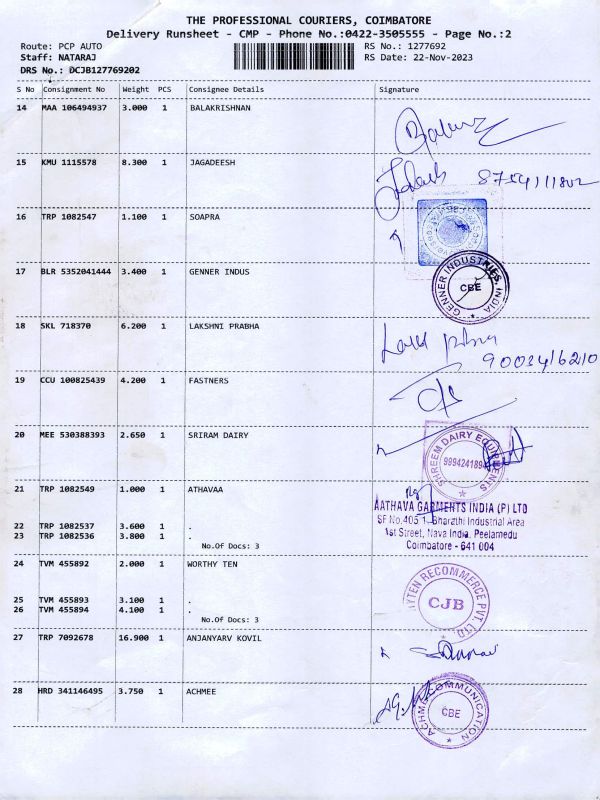 THE PROFESSIONAL COURIERS, COIMBATORE
Delivery Runsheet - CMP - Phone No.:0422-3505555 - Page No.:2
Route: PCP AUTO RS No.: 1277692
Staff: NATARAJ RS Date: 22-Nov-2023
DRS No.: DCJB127769202
S No Consignment No Weight PCS Consignee Details Signature
14 MAA 106494937 3.000 1 BALAKRISHNAN
15 KMU 1115578 8.300 1 JAGADEESH
16 TRP 1082547 1.100 1 SOAPRA
17 BLR 5352041444 3.400 1 GENNER INDUS
GENNER INDUSTRIES, INDIA
CBE
18 SKL 718370 6.200 1 LAKSHNI PRABHA
19 CCU 100825439 4.200 1 FASTNERS
20 MEE 530388393 2.650 1 SRIRAM DAIRY
SHREEM DAIRY EQUIPMENTS
21 TRP 1082549 1.000 1 ATHAVAA
AATHAVA GARMENTS INDIA (P) LTD
SF No.405 1- Bharathi Industrial Area
1st Street, Nava India, Peelamedu
Coimbatore - 641 004
22 TRP 1082537 3.600 1 .
23 TRP 1082536 3.800 1 .
No.Of Docs: 3
24 TVM 455892 2.000 1 WORTHY TEN
RECOMMERCE PVT. LTD.
CJB
25 TVM 455893 3.100 1 .
26 TVM 455894 4.100 1 .
No.Of Docs: 3
27 TRP 7092678 16.900 1 ANJANYARV KOVIL
28 HRD 341146495 3.750 1 ACHMEE
ACHMEE COMMUNICATION
CBE